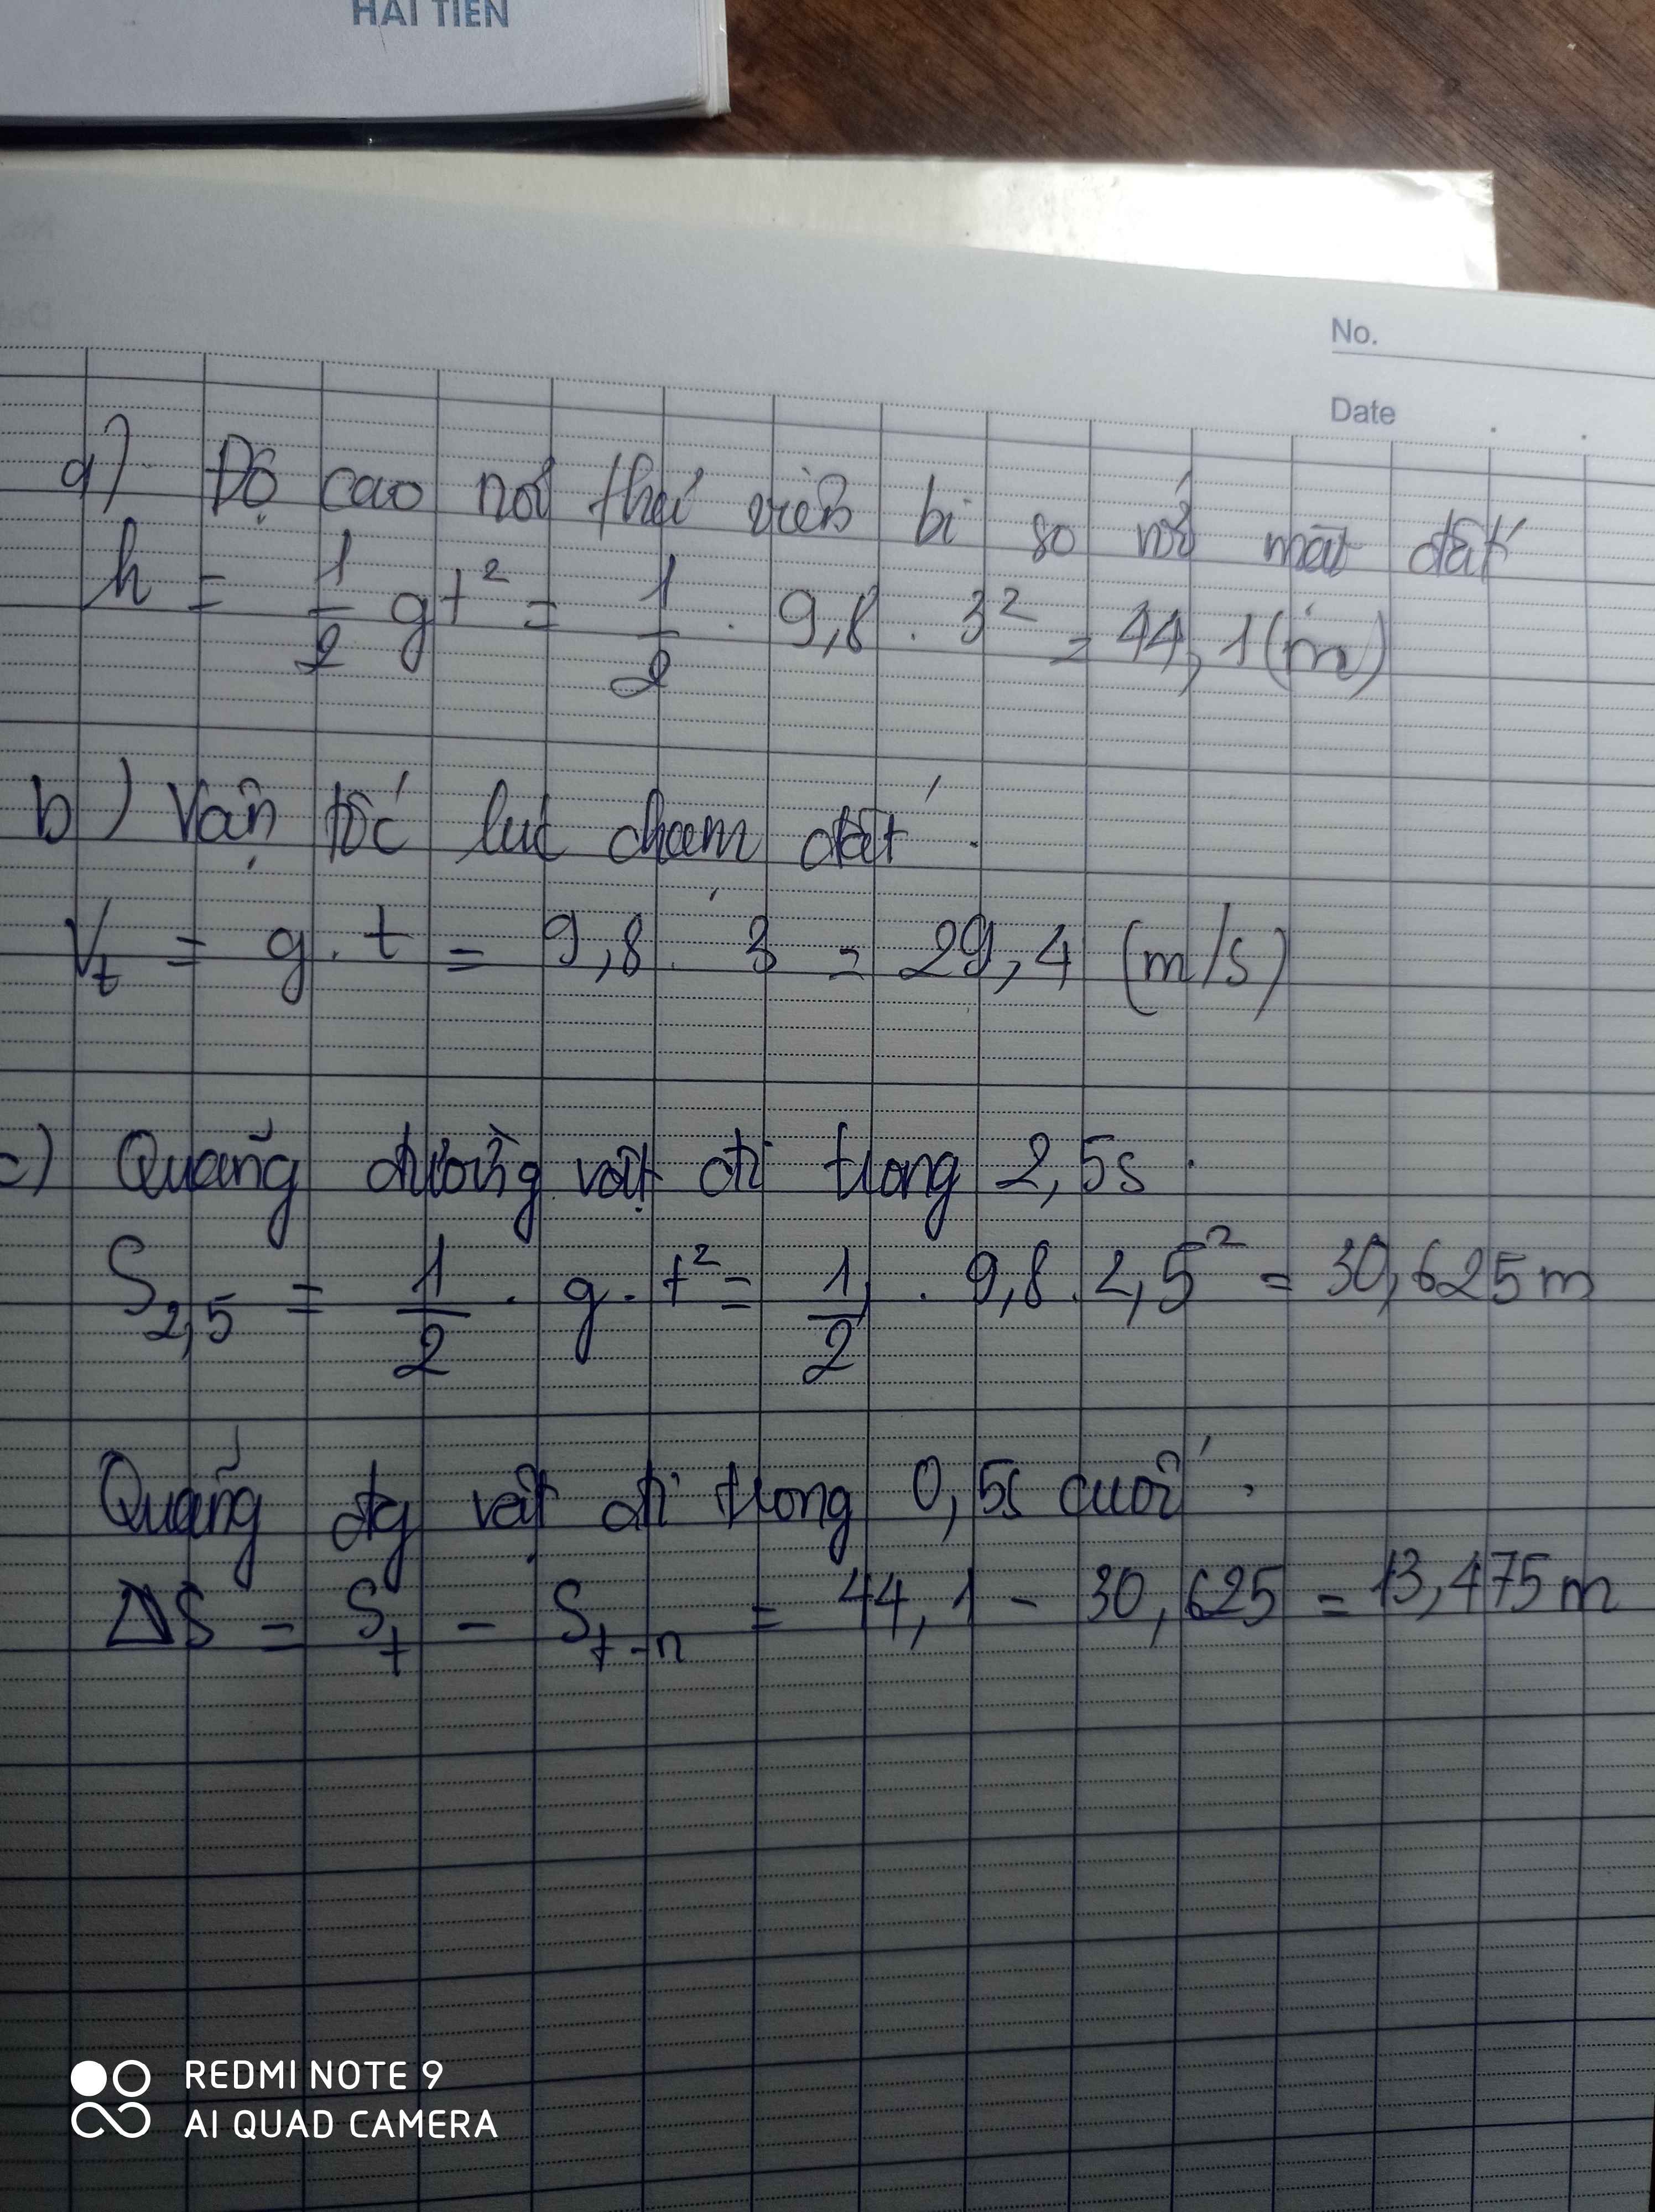 HẢI TIẾN
No.
Date
a) Độ cao nơi thả viên bi so với mặt đất
h = 1/2 gt² = 1/2 . 9,8 . 3² = 44,1 (m)
b) Vận tốc lúc chạm đất.
Vt = g.t = 9,8 . 3 = 29,4 (m/s)
c) Quãng đường vật đi trong 2,5s.
S2,5 = 1/2 . g . t² = 1/2 . 9,8 . 2,5² = 30,625 m
Quãng đg vật đi trong 0,5s cuối.
ΔS = St - St-n = 44,1 - 30,625 = 13,475 m
REDMI NOTE 9
AI QUAD CAMERA